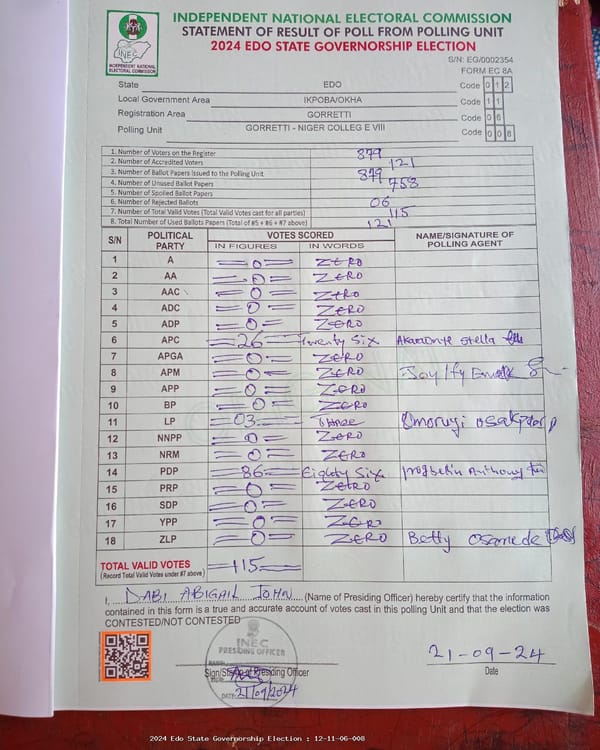 INDEPENDENT NATIONAL ELECTORAL COMMISSION
STATEMENT OF RESULT OF POLL FROM POLLING UNIT
2024 EDO STATE GOVERNORSHIP ELECTION
INEC
INDEPENDENT NATIONAL
ELECTORAL COMMISSION
S/N: EG/0002354
FORM EC 8A
State EDO Code 0 1 2
Local Government Area IKPOBA/OKHA Code 1 1
Registration Area GORRETTI Code 0 6
Polling Unit GORRETTI - NIGER COLLEG E VIII Code 0 0 8
1. Number of Voters on the Register 879
2. Number of Accredited Voters 121
3. Number of Ballot Papers Issued to the Polling Unit 879
4. Number of Unused Ballot Papers 758
5. Number of Spoiled Ballot Papers
6. Number of Rejected Ballots 06
7. Number of Total Valid Votes (Total Valid Votes cast for all parties) 115
8. Total Number of Used Ballots Papers (Total of #5 + #6 + #7 above) 121
S/N POLITICAL PARTY VOTES SCORED NAME/SIGNATURE OF POLLING AGENT
IN FIGURES IN WORDS
1 A =0= ZERO
2 AA =0= ZERO
3 AAC =0= ZERO
4 ADC =0= ZERO
5 ADP =0= ZERO
6 APC =26= Twenty Six Stella
7 APGA =0= ZERO
8 APM =0= ZERO
9 APP =0= ZERO
10 BP =0= ZERO
11 LP =03= Three Omoruyi
12 NNPP =0= ZERO
13 NRM =0= ZERO
14 PDP =86= Eighty Six Anthony
15 PRP =0= ZERO
16 SDP =0= ZERO
17 YPP =0= ZERO
18 ZLP =0= ZERO Betty Osamede
TOTAL VALID VOTES =115=
(Record Total Valid Votes under #7 above)
I, DABI ABIGAIL JOHN (Name of Presiding Officer) hereby certify that the information
contained in this form is a true and accurate account of votes cast in this polling Unit and that the election was
CONTESTED/NOT CONTESTED
INEC
PRESIDING OFFICER
21-09-24
Sign/Stamp of Presiding Officer Date
DATE: 21/09/2024
2024 Edo State Governorship Election : 12-11-06-008